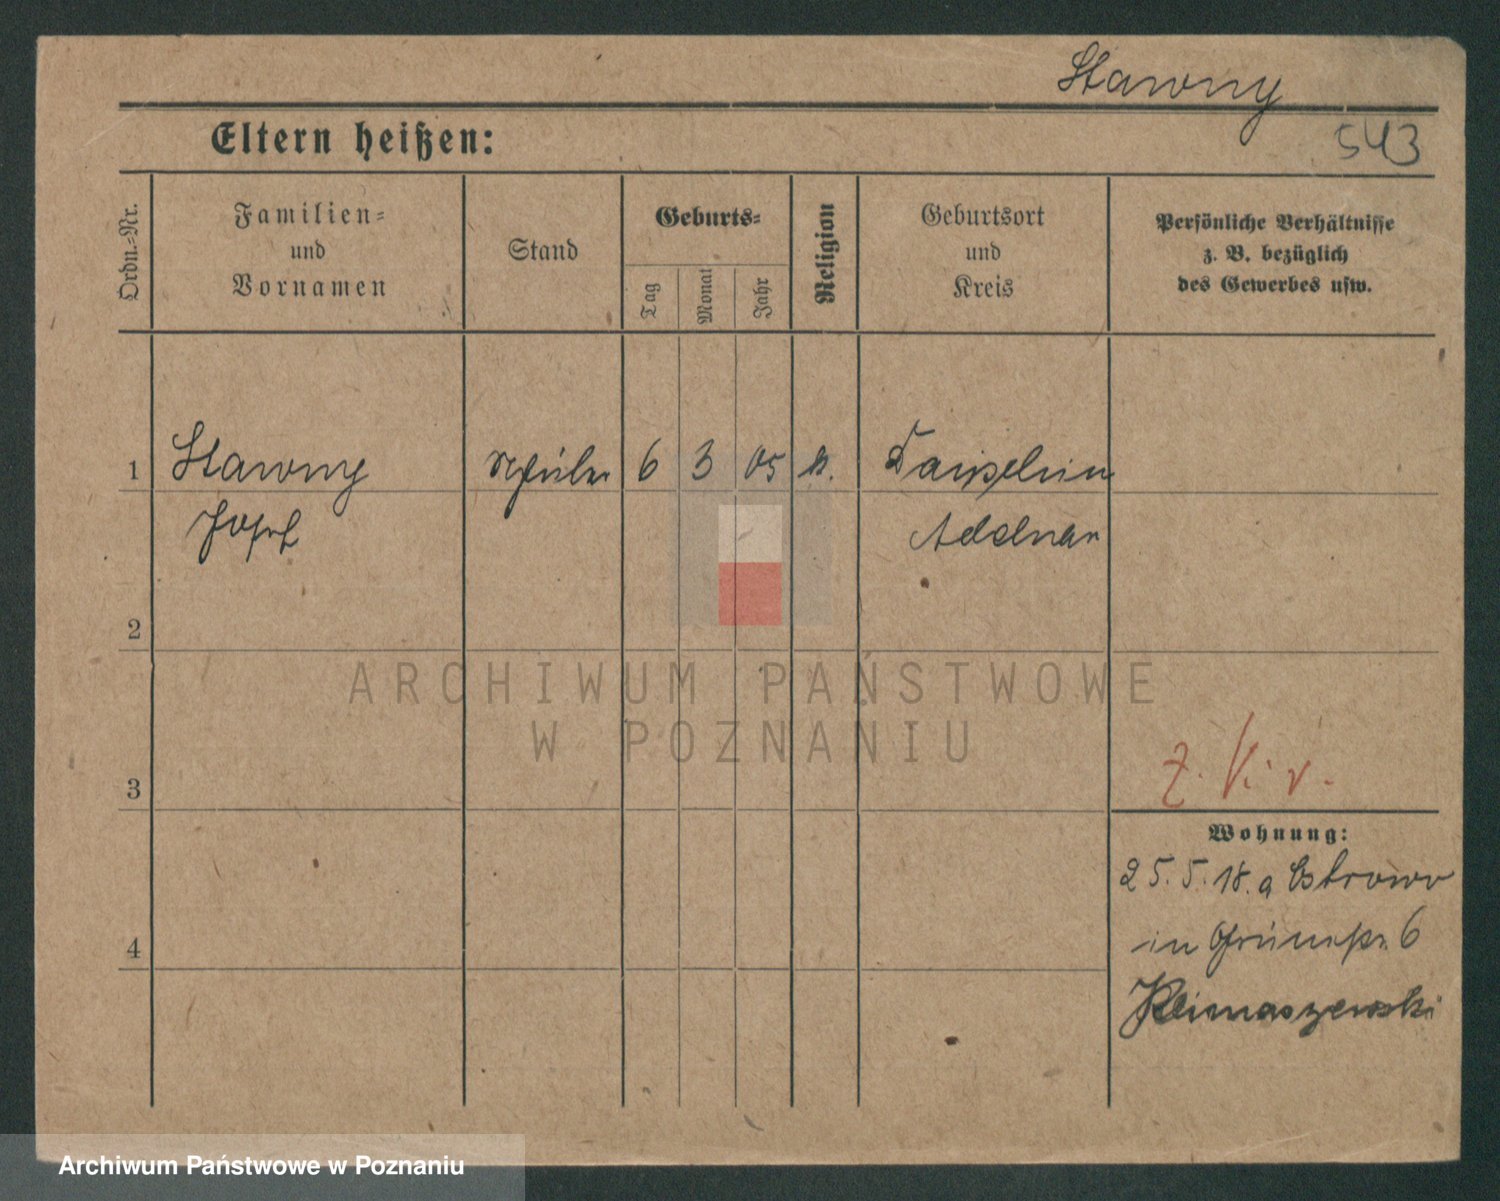 Stawny
543
Eltern heißen:
Ordn.=Nr.
Familien=
und
Vornamen
Stand
Geburts=
Tag
Monat
Jahr
Religion
Geburtsort
und
Kreis
Persönliche Verhältnisse
z. B. bezüglich
des Gewerbes usw.
1 Stawny Schüler 6 3 05 k.
Josef Adelnau
2
ARCHIWUM PAŃSTWOWE
W POZNANIU
3
Wohnung:
25.5.18. a Ostrowo
4
in 6
Klimaszewski
Archiwum Państwowe w Poznaniu